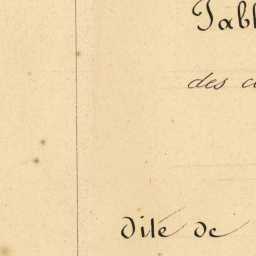 Tabl
des
dite de